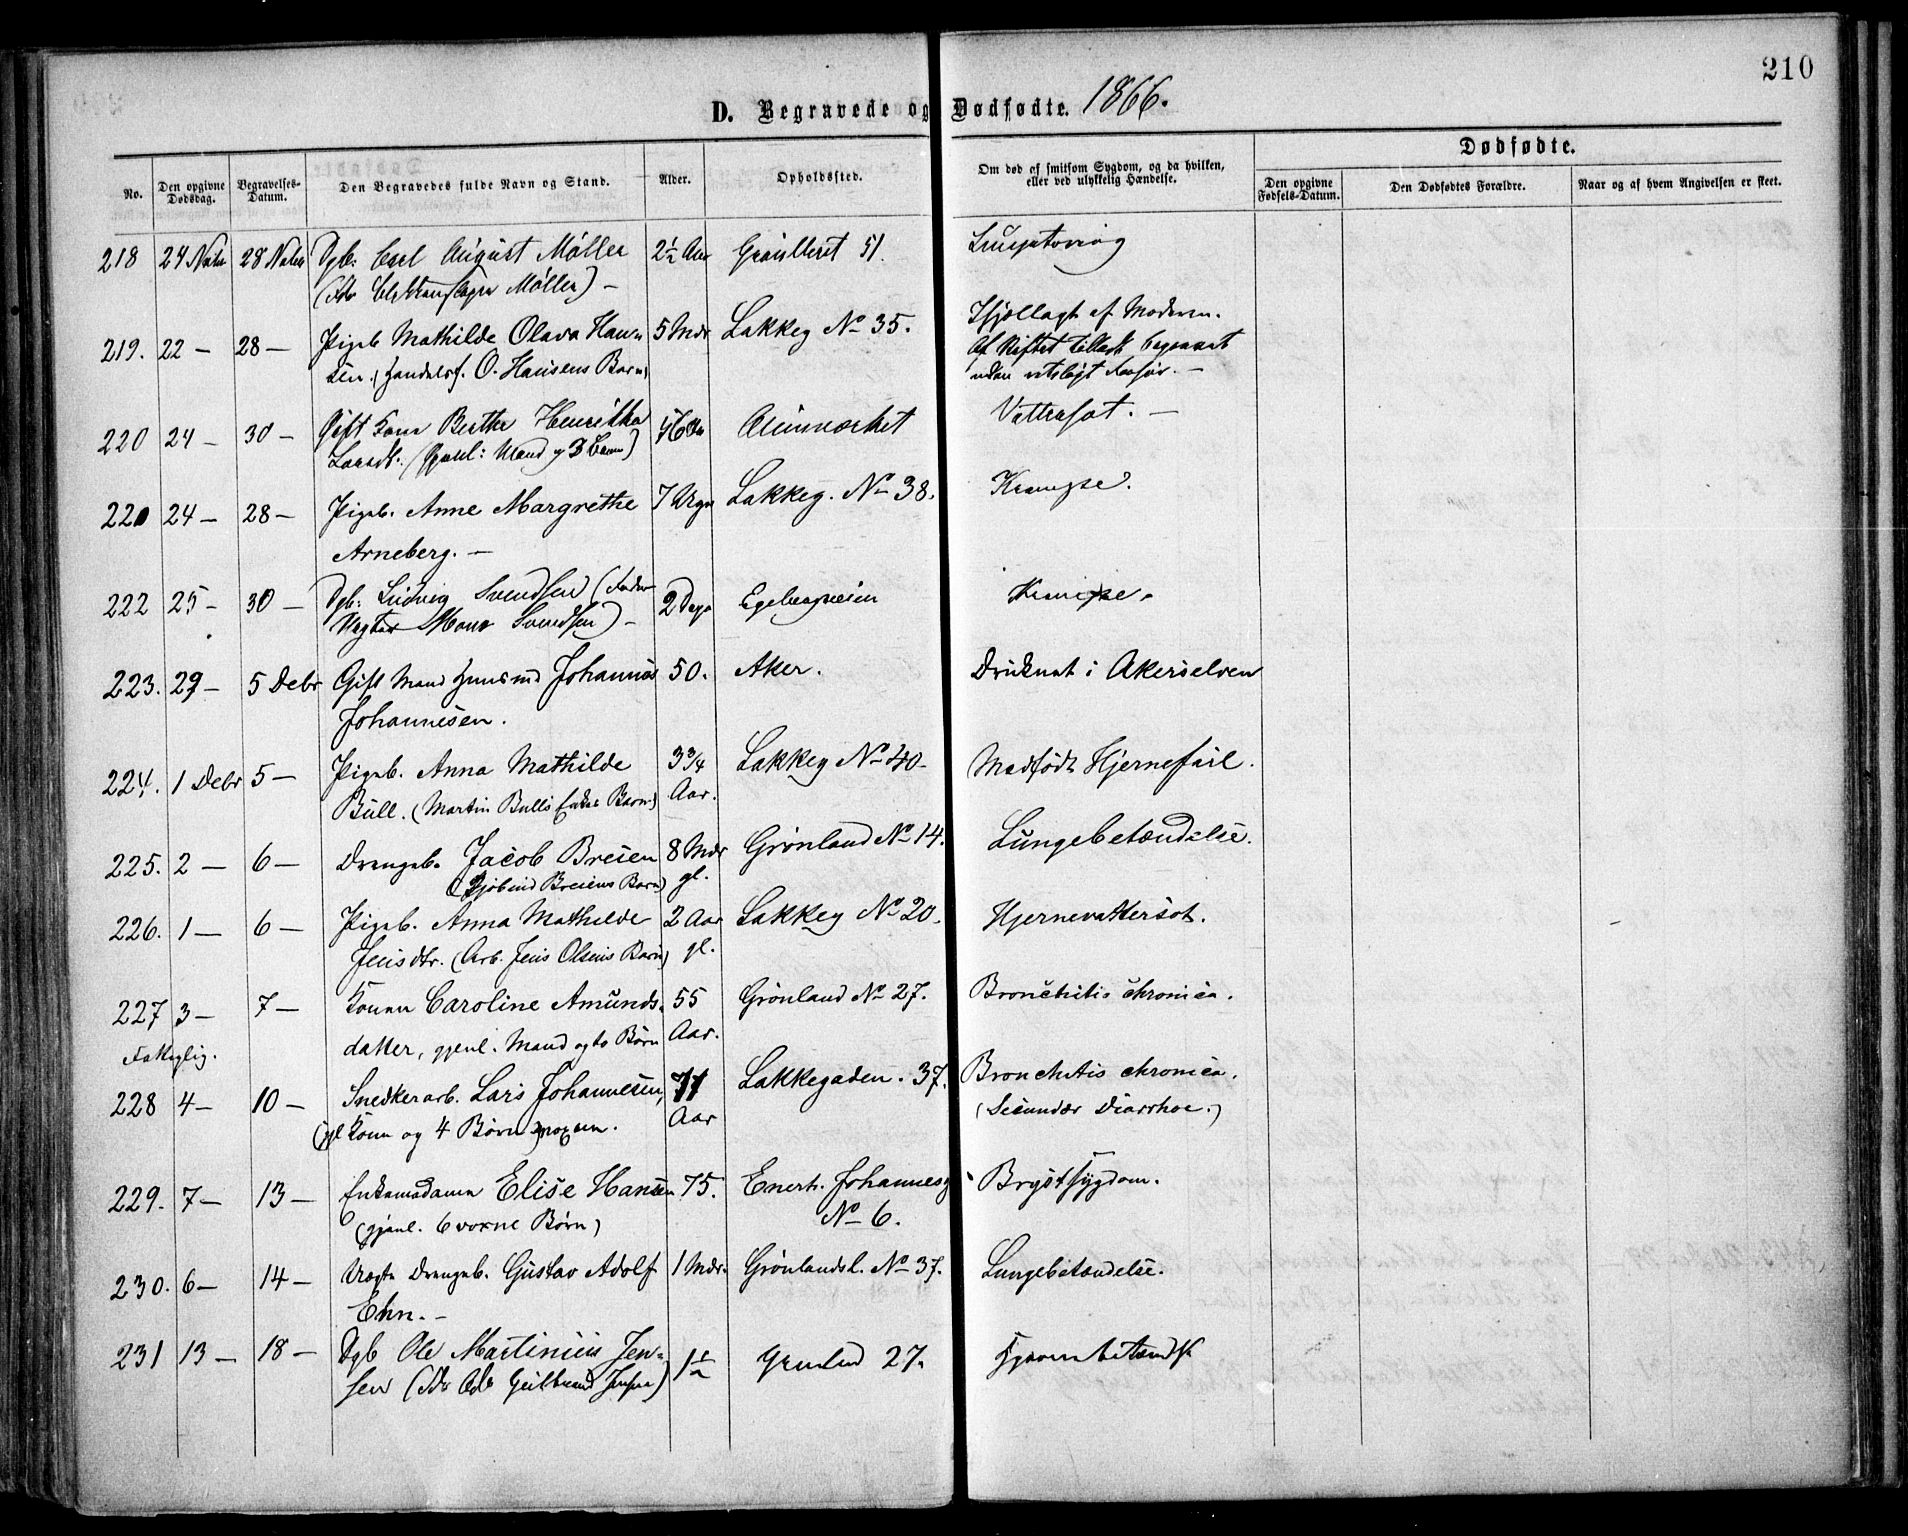 210
D. Begravede og Dødfødte. 1866.
No.
Den opgivne Dødsdag.
Begravelses-Datum.
Den Begravedes fulde Navn og Stand.
Alder.
Opholdssted.
Om død af smitsom Sygdom, og da hvilken, eller ved ulykkelig Hændelse.
Dødfødte.
Den opgivne Fødsels-Datum.
Den Dødfødtes Forældre.
Naar og af hvem Angivelsen er skeet.
218 24 28 Dgb: Carl August Møller 2½ Aar 51.
Møller) –
219. 22 – 28 – Pigeb. Mathilde Olava Han- 5 Mdr Lakkeg No 35. af Moderen.
sen. ( O. Hansens Barn)
220 24 – 30 – Gift Kone Berthe Vattersot. –
Mand og 3 Børn)
24 – 28 – Pigeb. Anne Margrethe 7 Lakkeg. No 38. Krampe.
Arneberg. –
222 25 – 30 – Dgb: Ludvig Svendsen 2 Dage Krampe.
Svendsen) –
223. 29 – 5 Debr Gift Mand Johannes 50. Aker. Druknet i Akerselven
Johannesen.
224. 1 Debr 5 – Pigeb. Anna Mathilde 3¾ Aar. Lakkeg No 40. Medfødt Hjernefeil.
Bull. (Martin Bulls Enkes Barn)
225. 2 – 6 – Drengeb. Jacob Breien 8 Mdr gl. Grønland No 14. Lungebetændelse.
Breiens Barn)
226. 1 – 6 – Pigeb. Anna Mathilde 2 Aar gl. Lakkeg No 20. Hjernevattersot.
Jensdtr. (Arb. Jens Olsens Barn)
227 3 – 7 – Konen Caroline Amunds- 55 Aar. Grønland No 27. Bronchitis chronica.
datter, gjenl. Mand og to Børn
Fattiglig.
228 4 – 10 – Snedkerarb. Lars Johannesen, 71 Aar Lakkegaden. 37. Bronchitis chronica.
(gjl Kone og 4 Børn) (Secundær Diarrhoe.)
229. 7 – 13 – Enkemadame Elise Hansen 75. Enerh. Johannesg No 6. Brystsygdom.
(gjenl. 6 voxne Børn)
230. 6 – 14 – Uægte Drengeb. Gustav Adolf 1 Mdr. Grønlandsl. No 37. Lungebetændelse.
Ehn. –
231 13 – 18 – Dgb Ole Martinius Jen- 27.
sen